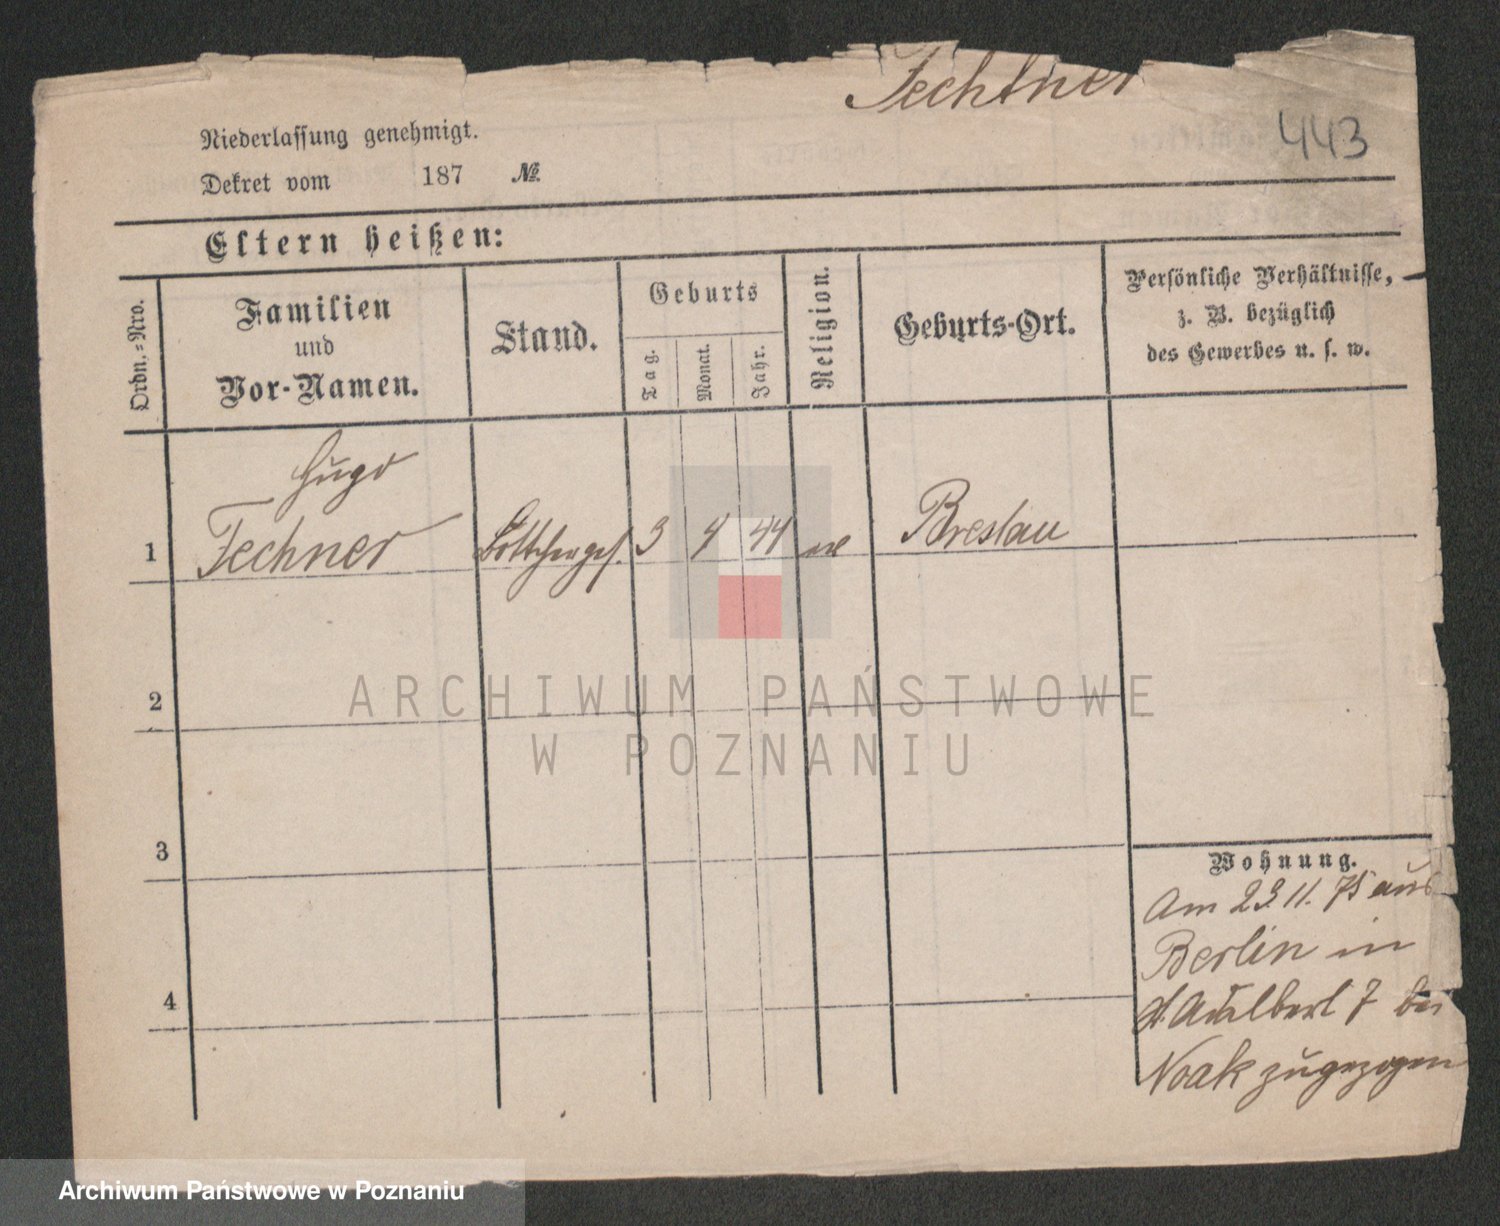 Fechner
443
Niederlassung genehmigt.
Dekret vom 187 №
Eltern heißen:
Ordn.-Nro.
Familien
und
Vor-Namen.
Stand.
Geburts
Tag.
Monat.
Jahr.
Religion.
Geburts-Ort.
Persönliche Verhältnisse,
z. B. bezüglich
des Gewerbes u. s. w.
Hugo
1 Fechner Böttcherges. 3 4 44 ev Breslau
2
3
4
Wohnung.
Am 23.11.75 aus
Berlin in
St. Adalbert 7 bei
Noak zugezogen
ARCHIWUM PAŃSTWOWE
W POZNANIU
Archiwum Państwowe w Poznaniu